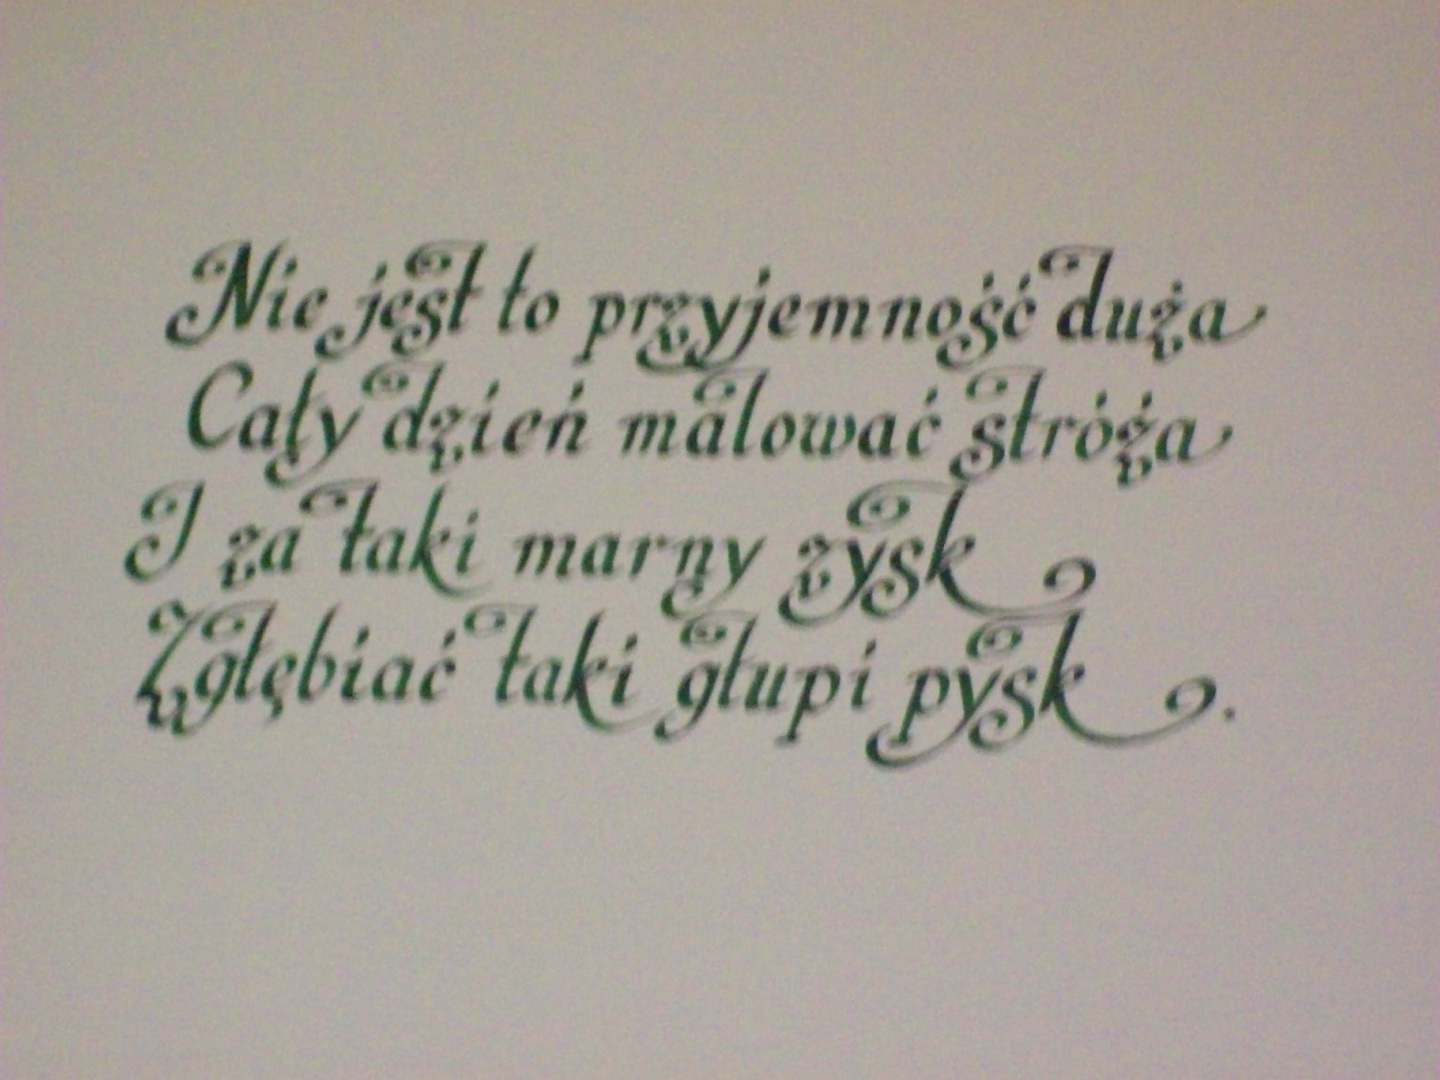 Nie jest to przyjemność duża
Cały dzień malować stróża
I za taki marny zysk
Zgłębiać taki głupi pysk.